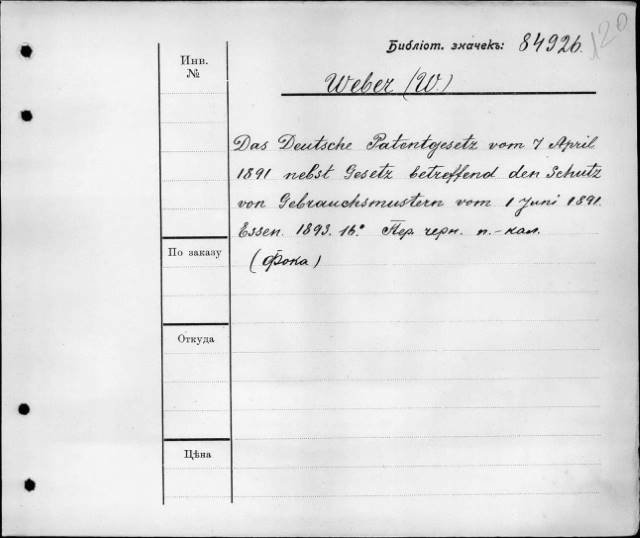 120
Библіот. значекъ: 84926.
Инв.
№
Weber (W.)
Das Deutsche Patentgesetz vom 7 April
1891 nebst Gesetz betreffend den Schutz
von Gebrauchsmustern vom 1 Juni 1891.
Essen. 1893. 16º Пер. черн. п.-кал.
(Фока)
По заказу
Откуда
Цѣна